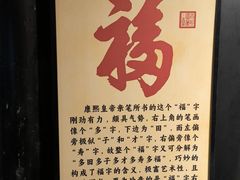 福
康熙皇帝亲笔所书的这个“福”字
刚劲有力，颇具气势，右上角的笔画
像个“多”字，下边为“田”，而左偏
旁极似“子”和“才”字，右偏旁像个
“寿”字，故整个“福”字又可分解为
“多田多子多才多寿多福”，巧妙的
构成了福字的含义，极富艺术性，且